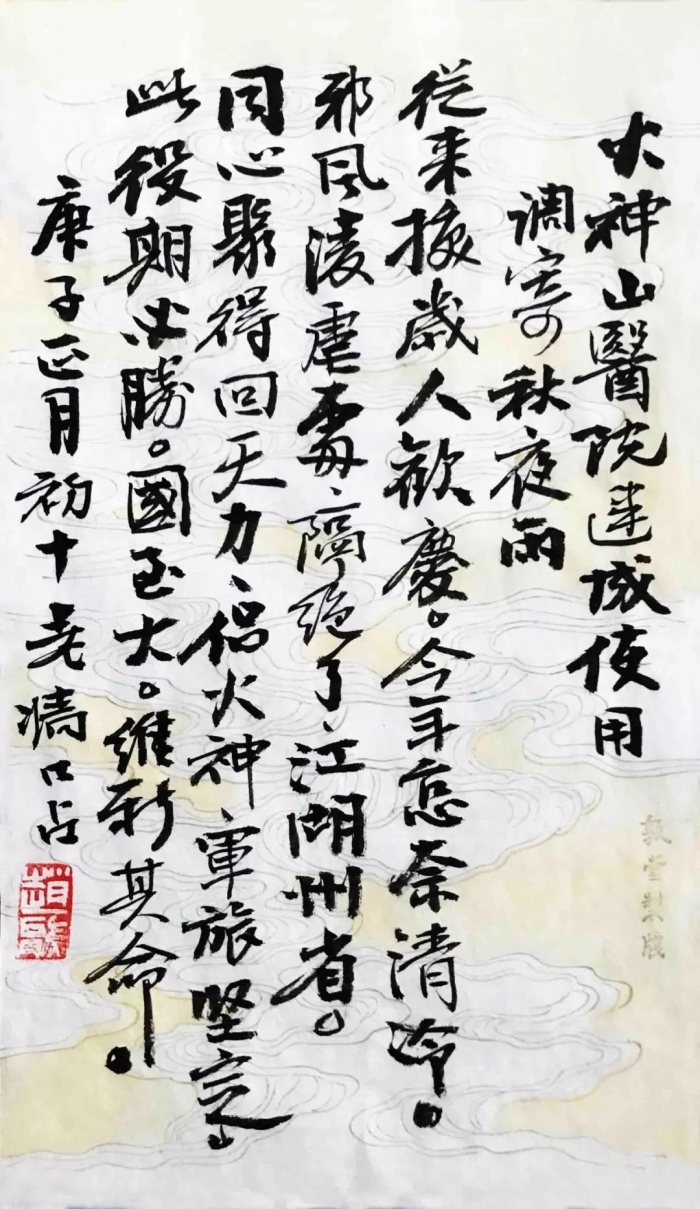 火神山醫院建成使用
調寄秋夜雨
從來換歲人歡慶。今年怎奈清冷。
邪風淩虐處、隔絕了、江湖州省。
同心聚得回天力、倡火神、軍旅堅定。
此役期必勝。國至大。維新其命。
庚子正月初十堯墻口占
敦堂製版